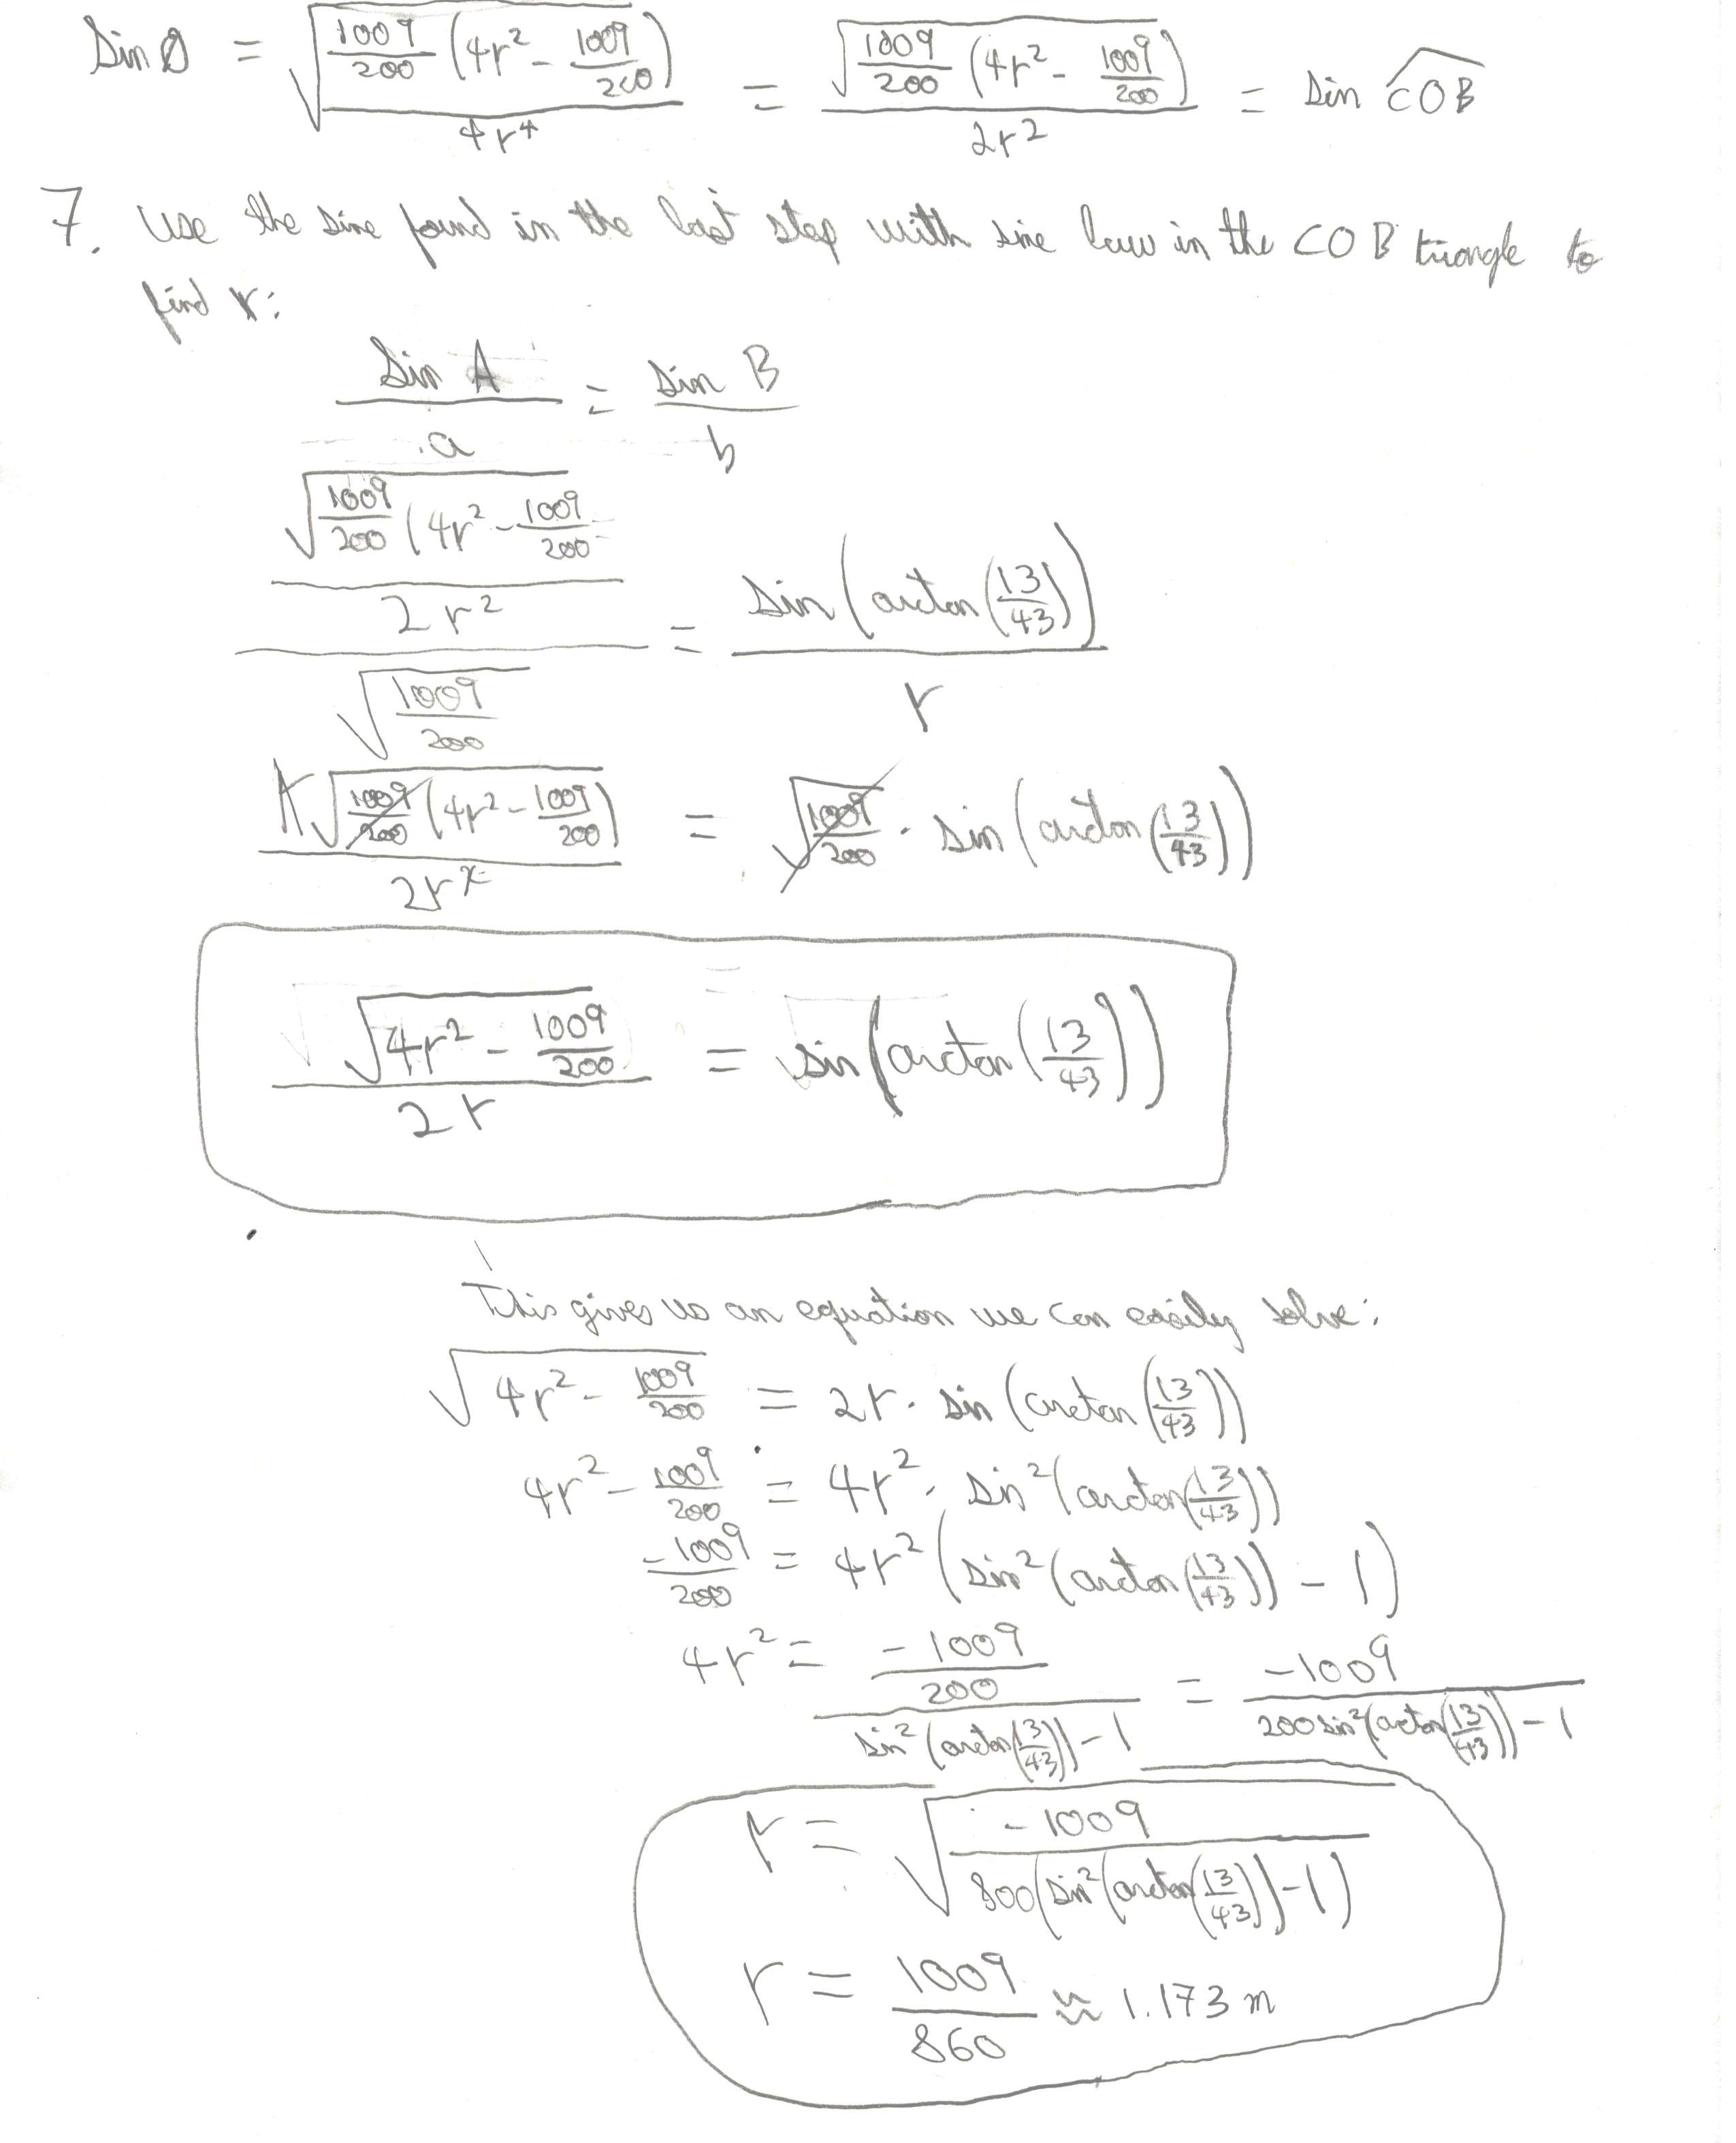 sin θ = √(1009/200 (4r² - 1009/200) / 4r⁴) = √(1009/200 (4r² - 1009/200)) / 2r² = sin COB
7. Use the sine found in the last step with sine law in the COB triangle to
find r:
sin A / a = sin B / b
(√(1009/200 (4r² - 1009/200 / 2r²) / √(1009/200) = sin(arctan(13/43)) / r
r√(1009/200 (4r² - 1009/200)) / 2r² = √(1009/200) · sin(arctan(13/43))
√(4r² - 1009/200) / 2r = sin(arctan(13/43))
This gives us an equation we can easily solve:
√(4r² - 1009/200) = 2r · sin(arctan(13/43))
4r² - 1009/200 = 4r² · sin²(arctan(13/43))
-1009/200 = 4r² (sin²(arctan(13/43)) - 1)
4r² = (-1009/200) / (sin²(arctan(13/43)) - 1) = -1009 / (200 sin²(arctan(13/43)) - 1
r = √(-1009 / 800(sin²(arctan(13/43)) - 1))
r = 1009/860 ≈ 1.173 m